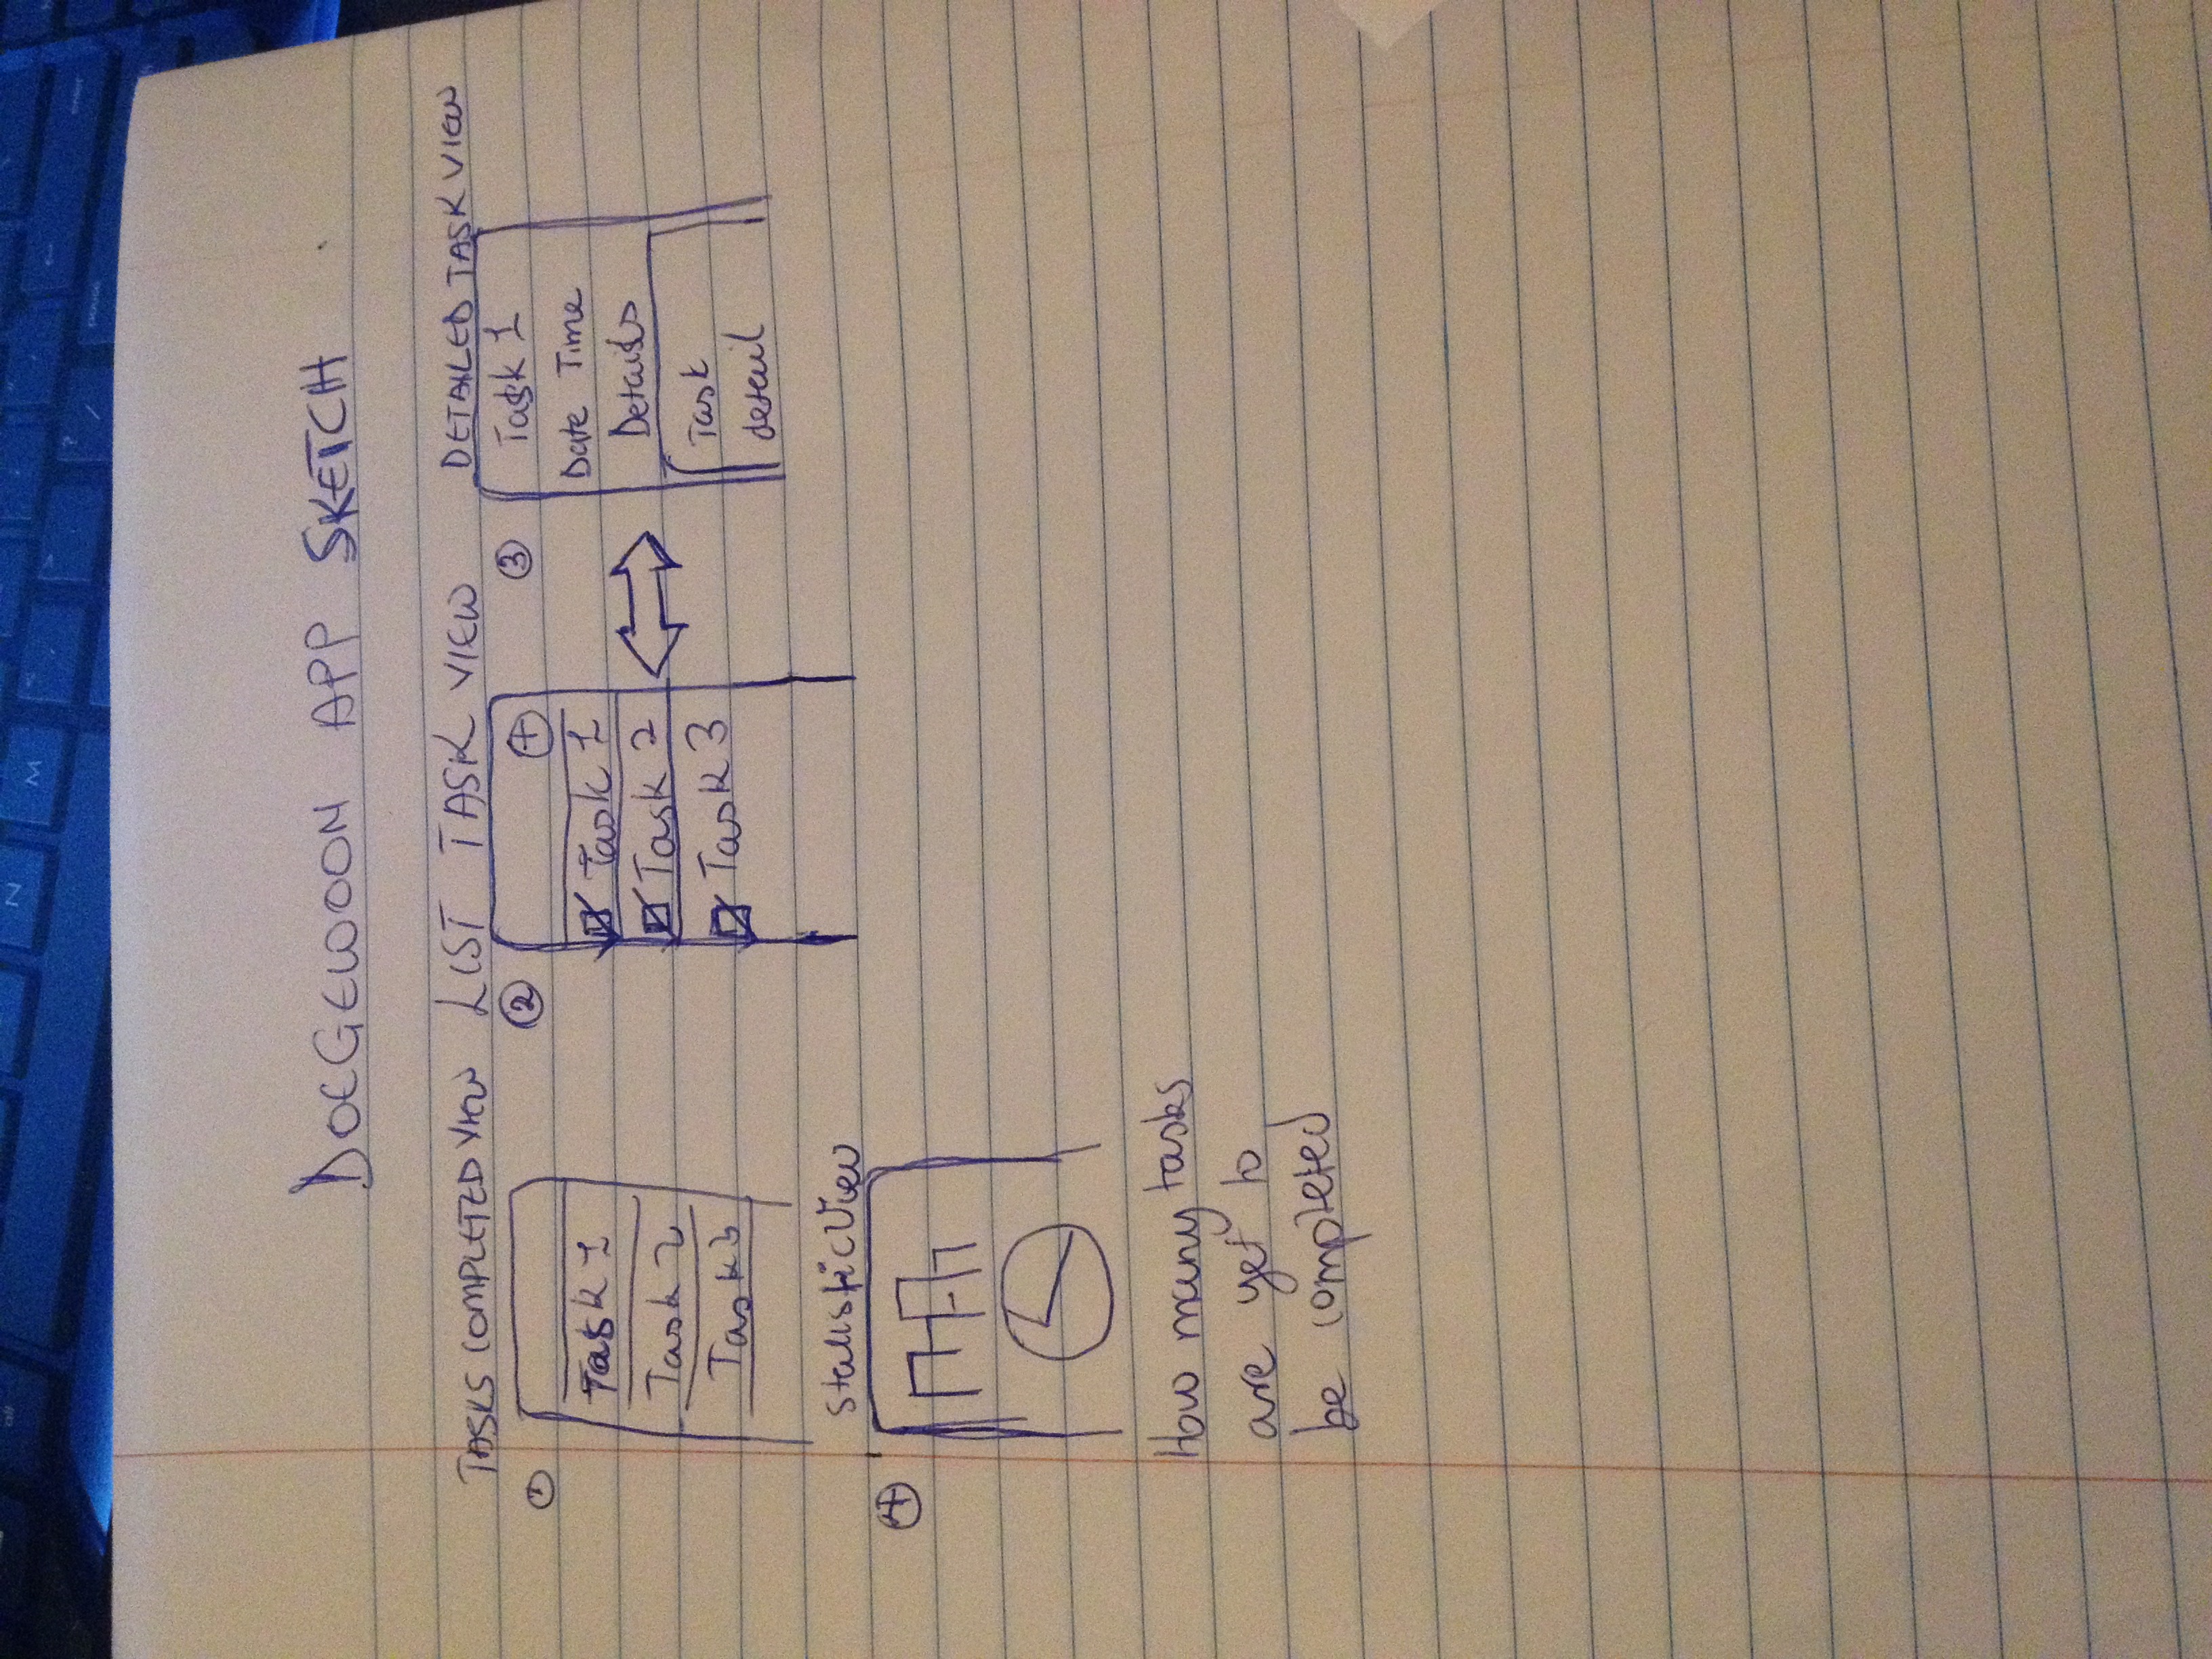 DOEGEWOOON APP SKETCH
TASKS COMPLETED VIEW
1
Task 1
Task 2
Task 3
LIST TASK VIEW
2
+
Task 1
Task 2
Task 3
DETAILED TASK VIEW
3
Task 1
Date Time
Details
Task
detail
Statistic View
4
How many tasks
are yet to
be completed
N
M
?
/
enter